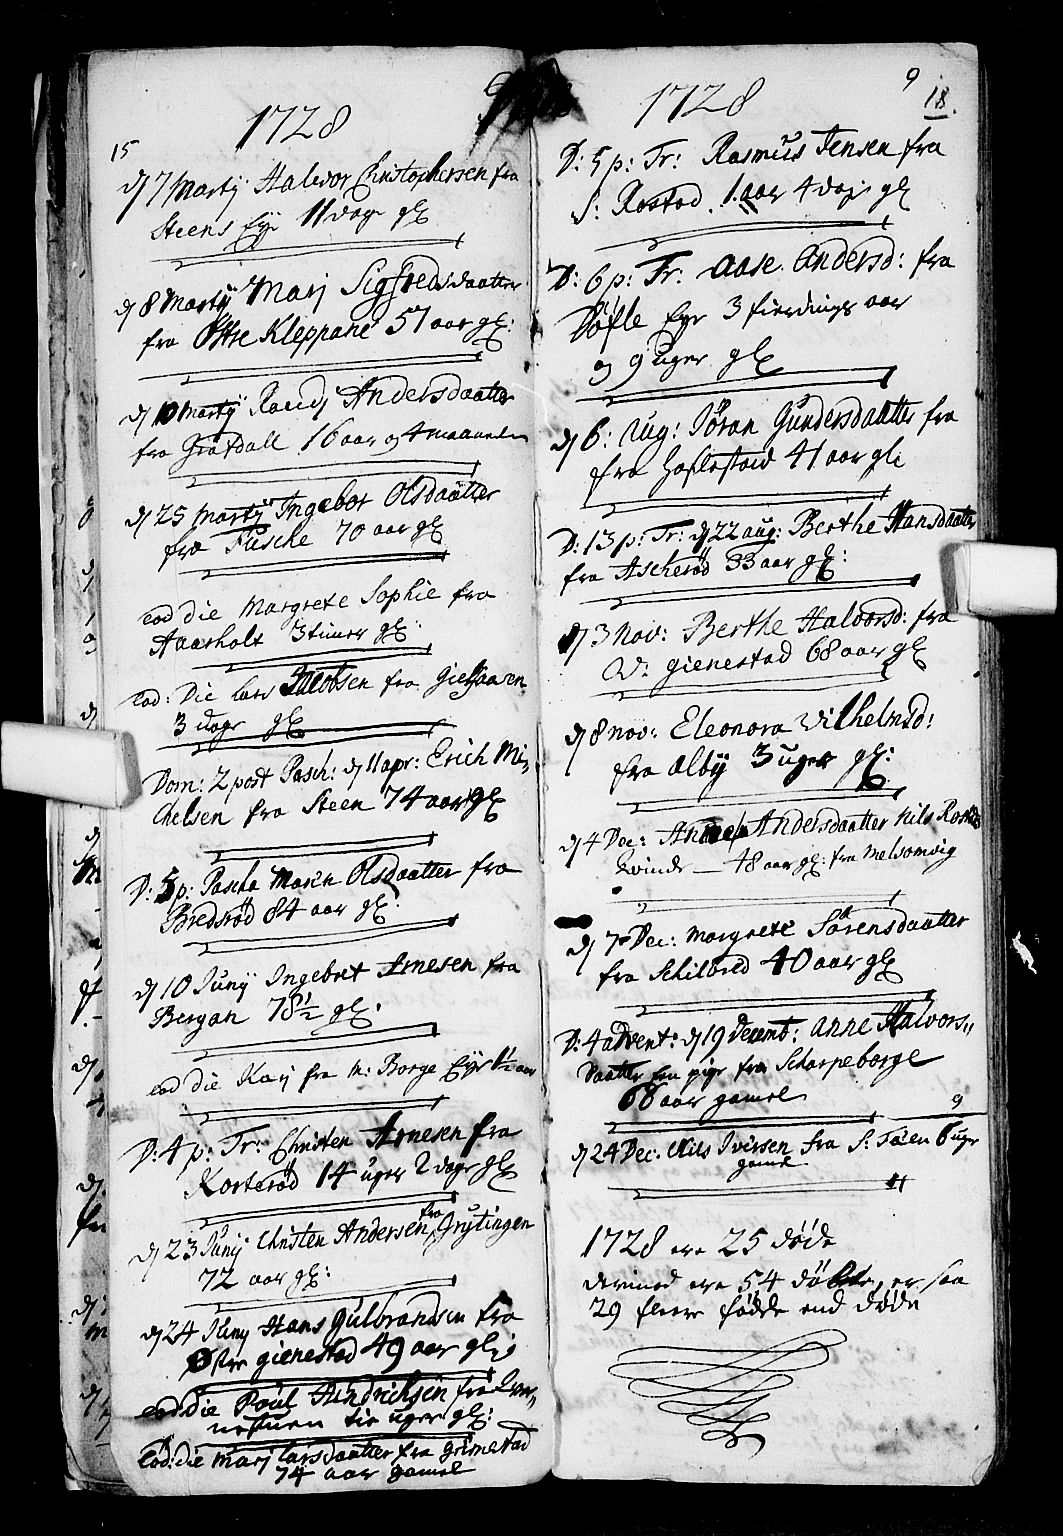 1728
15
d 7 Martij Halvor Christophersen fra
Steens Eye 11 dage gl
d 8 Martij Marj Sigfredsdaatter
fra Østre Kleppane 57 aar gl:
d 10 Martij Randj Andersdaatter
fra Grøtdall 16 aar og 4 maaneder
d 25 Martij Ingebor Olsdaatter
fra Fusche 70 aar gl
eod die Margrete Sophie fra
Aaarholt 3 timer gl:
eod: Die Lars Jacobsen fra
3 dage gl
Dom: 2 post Pasch: d 11 apr: Erich Mi-
chelsen fra Steen 74 aar gl
D: 5 p: Pascha Maren Olsdaatter fra
Bredsrød 84 aar gl:
d 10 Junij Ingebret Arnesen fra
Bergan 78½ gl:
eod die Karj fra n: Borge Eye ½ aar
D: 4 p: Tr: Christen Arnesen fra
Korterød 14 uger 2 dage gl
d 23 Junij Christen Andersen fra Grytingen
72 aar gl:
d 24 Junij Hans Gulbrandsen fra
Østre gienestad 49 aar gl:
eod: die Poul Hendrichsen fra
tie uger gl:
Eod: die Marj Larsdaatter fra Grimestad
74 aar gamel
9
18.
1728
D: 5 p: Tr: Rasmus Jensen fra
S: Rostad 1. aar 4 dage gl
D: 6 p: Tr: Aase Andersd: fra
Døfle Eye 3 fierdings aar
og 9 uger gl
d 6: Aug: Jøran Gundersdaatter fra
fra Haslestad 41 aar gl:
D: 13 p: Tr: d 22 aug: Berthe Hansdaatter
fra Ascherød 33 aar gl:
d 3 Nov: Berthe Halvorsd: fra
W: gienestad 68 aar gl
d 8 nov: Eleonora Vilhelmsd:
fra Alby 3 uger gl:
d 4 Dec: Andersdaatter Nils
Kvinde — 48 aar gl: fra Melsomvig
d 7 Dec: Margrete Sørensdaatter
fra Schilbred 40 aar gl
D: 4 advent: d 19 Decemb: Anne Halvors„
daatter Een pige fra Scharpeborge
68 aar gamel
9
d 24 Dec. Nils Iversen fra S: Tøien 6 uger
gamel
1728 ere 25 døde
derimod ere 54 døbte, er saa
29 fleere fødde end døde